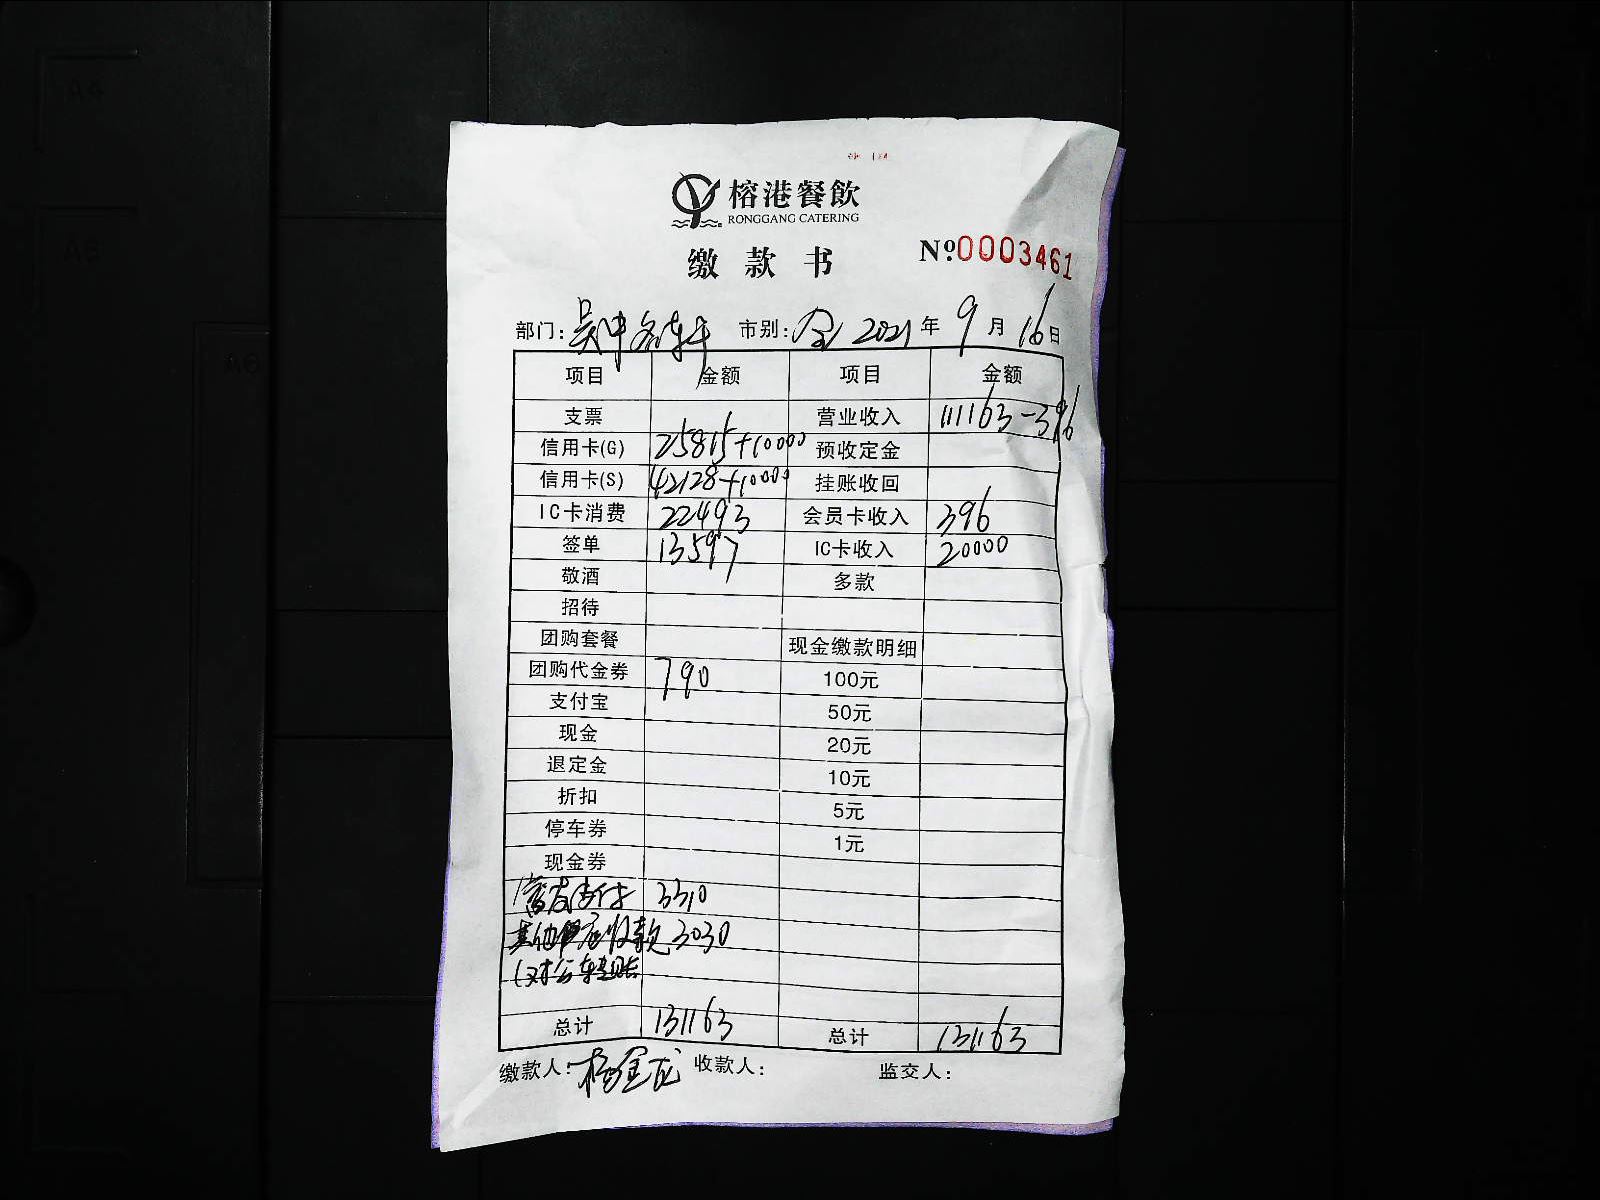 榕港餐飲
RONGGANG CATERING
缴款书
Nº0003461
部门:吴中 市别:全 2021年9月16日
项目 金额 项目 金额
支票 营业收入 111163-396
信用卡(G) 25815+10000 预收定金
信用卡(S) 42128+10000 挂账收回
IC卡消费 22493 会员卡收入 396
签单 13597 IC卡收入 20000
敬酒 多款
招待
团购套餐 现金缴款明细
团购代金券 790 100元
支付宝 50元
现金 20元
退定金 10元
折扣 5元
停车券 1元
现金券
3310
其他应收款 3030
(对公转账
总计 131163 总计 131163
缴款人:杨金龙 收款人: 监交人: